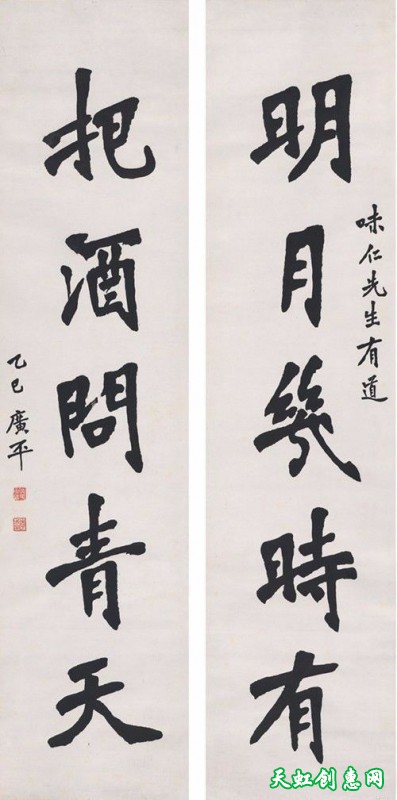 明月幾時有
味仁先生有道
把酒問青天
乙巳廣平
天虹创惠网